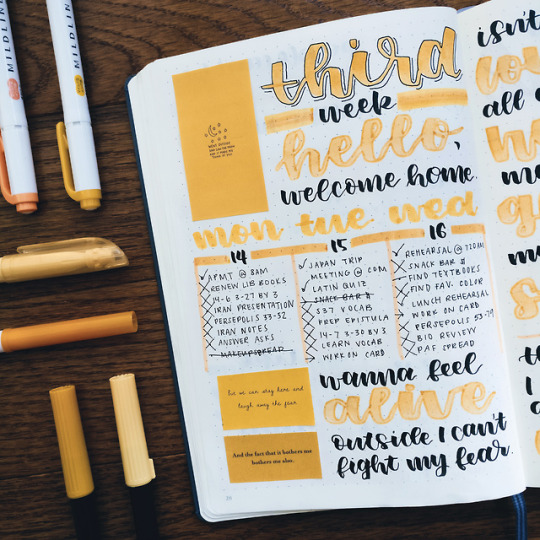 MILDLINE
MILDLINE
third
week
hello,
welcome home.
mon tue wed
14
✓APMT @ 8AM
RENEW LIB BOOKS
14-6 3-27 BY 3
IRAN PRESENTATION
PERSEPOLIS 33-52
IRAN NOTES
ANSWER ASKS
MAKEUP SPREAD
15
✓JAPAN TRIP
MEETING @ COM
✓LATIN QUIZ
SNACK BAR #
S37 VOCAB
PREP EPISTULA
14-7 3-30 BY 3
LEARN VOCAB
WORK ON CARD
16
✓REHEARSAL @ 720AM
SNACK BAR #
FIND TEXTBOOKS
FIND FAV. COLOR
✓LUNCH REHEARSAL
WORK ON CARD
PERSEPOLIS 53-79
BIO REVIEW
PAF SPREAD
but we can stay here and
laugh away the fear
And the fact that it bothers me
bothers me also.
wanna feel
alive
outside I can't
fight my fear.
isn't
all